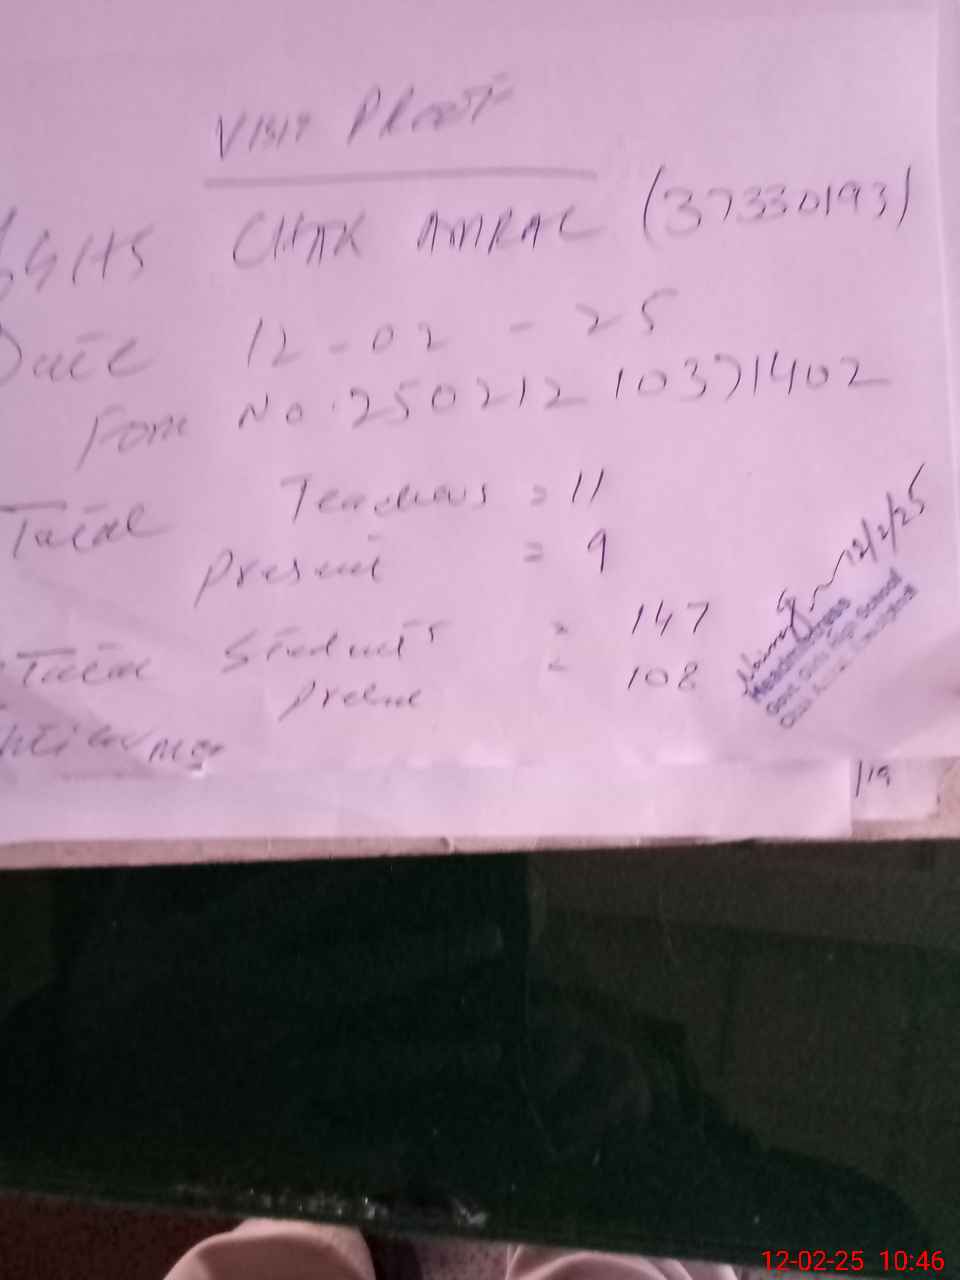 VISIT PROOF
GGHS CHAK AMRAL (37330193)
Date 12-02-25
Form No. 25021210371402
Total Teachers = 11
Present = 9
Total Students = 147
Present = 108
12/2/25
Headmistress
Govt. Girls High School
/19
12-02-25 10:46